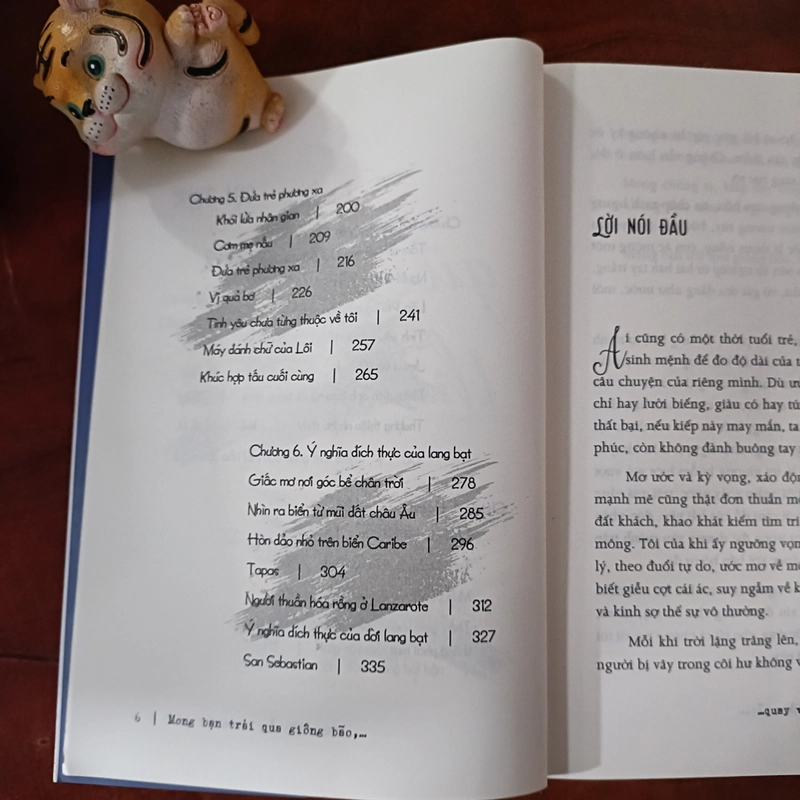 Chương 5. Đứa trẻ phương xa
Khói lửa nhân gian | 200
Cơm mẹ nấu | 209
Đứa trẻ phương xa | 216
Vị quả bơ | 226
Tình yêu chưa từng thuộc về tôi | 241
Máy đánh chữ của Lôi | 257
Khúc hợp tấu cuối cùng | 265
Chương 6. Ý nghĩa đích thực của lang bạt
Giấc mơ nơi góc bể chân trời | 278
Nhìn ra biển từ mũi đất châu Âu | 285
Hòn đảo nhỏ trên biển Caribe | 296
Tapas | 304
Người thuần hóa rồng ở Lanzarote | 312
Ý nghĩa đích thực của đời lang bạt | 327
San Sebastian | 335
6 | Mong bạn trải qua giông bão,...
LỜI NÓI ĐẦU
Ai cũng có một thời tuổi trẻ,
sinh mệnh để đo độ dài của
câu chuyện của riêng mình. Dù
chỉ hay lười biếng, giàu có hay
thất bại, nếu kiếp này may mắn, ta
phúc, còn không đành buông tay
Mơ ước và kỳ vọng, xáo
mạnh mẽ cũng thật đơn thuần
đất khách, khao khát kiếm tìm
mông. Tôi của khi ấy ngưỡng
lý, theo đuổi tự do, ước mơ về
biết giễu cợt cái ác, suy ngẫm về
và kinh sợ thế sự vô thường.
Mỗi khi trời lặng trăng lên,
người bị vây trong cõi hư không
…quay